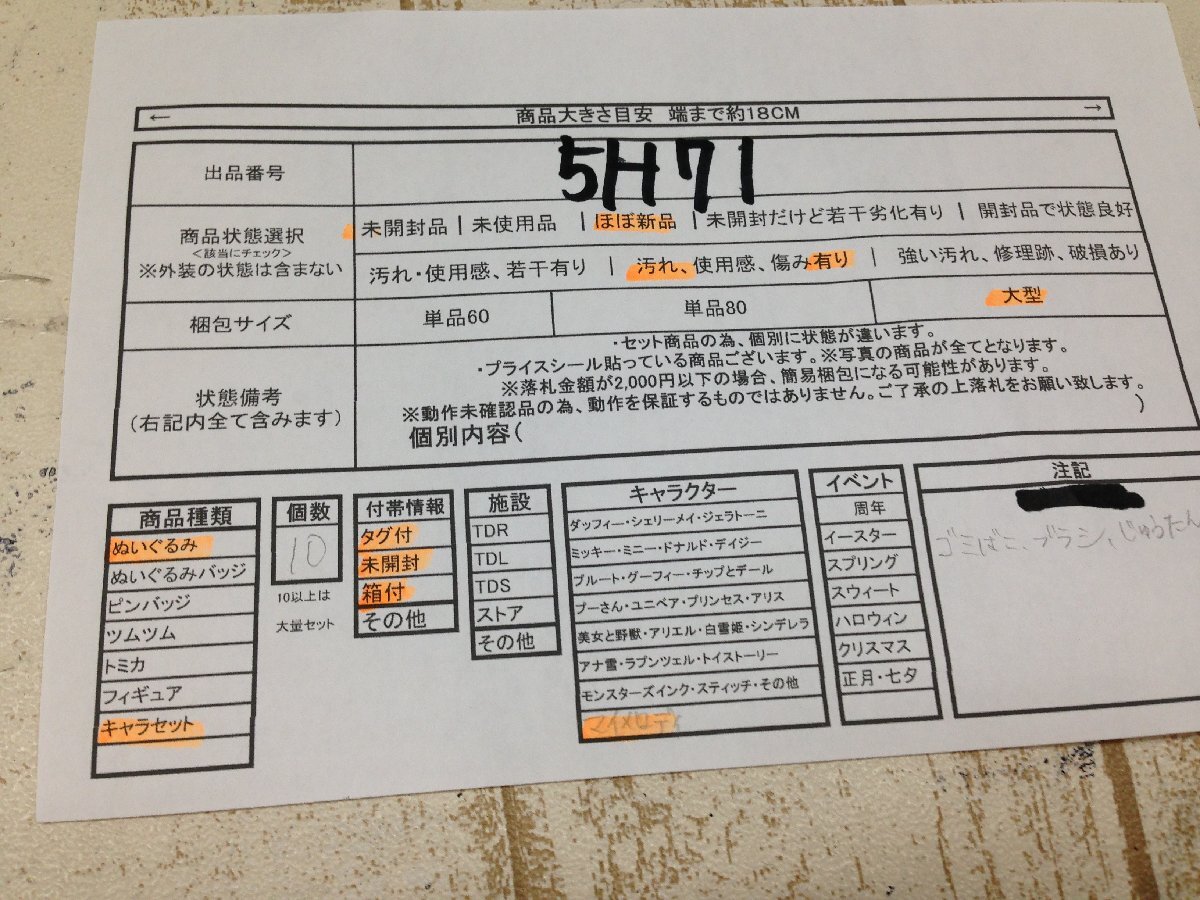 ← 商品大きさ目安 端まで約18CM →
出品番号
5H71
商品状態選択
<該当にチェック>
※外装の状態は含まない
未開封品 | 未使用品 | ほぼ新品 | 未開封だけど若干劣化有り | 開封品で状態良好
汚れ・使用感、若干有り | 汚れ、使用感、傷み有り | 強い汚れ、修理跡、破損あり
梱包サイズ
単品60
単品80
大型
状態備考
(右記内全て含みます)
・セット商品の為、個別に状態が違います。
・プライスシール貼っている商品ございます。※写真の商品が全てとなります。
※落札金額が2,000円以下の場合、簡易梱包になる可能性があります。
※動作未確認品の為、動作を保証するものではありません。ご了承の上落札をお願い致します。
個別内容( )
商品種類
ぬいぐるみ
ぬいぐるみバッジ
ピンバッジ
ツムツム
トミカ
フィギュア
キャラセット
個数
10
10以上は
大量セット
付帯情報
タグ付
未開封
箱付
その他
施設
TDR
TDL
TDS
ストア
その他
キャラクター
ダッフィー・シェリーメイ・ジェラトーニ
ミッキー・ミニー・ドナルド・デイジー
プルート・グーフィー・チップとデール
プーさん・ユニベア・プリンセス・アリス
美女と野獣・アリエル・白雪姫・シンデレラ
アナ雪・ラプンツェル・トイストーリー
モンスターズインク・スティッチ・その他
マイメロディ
イベント
周年
イースター
スプリング
スウィート
ハロウィン
クリスマス
正月・七夕
注記
ゴミばこ、ブラシ、じゅうたん